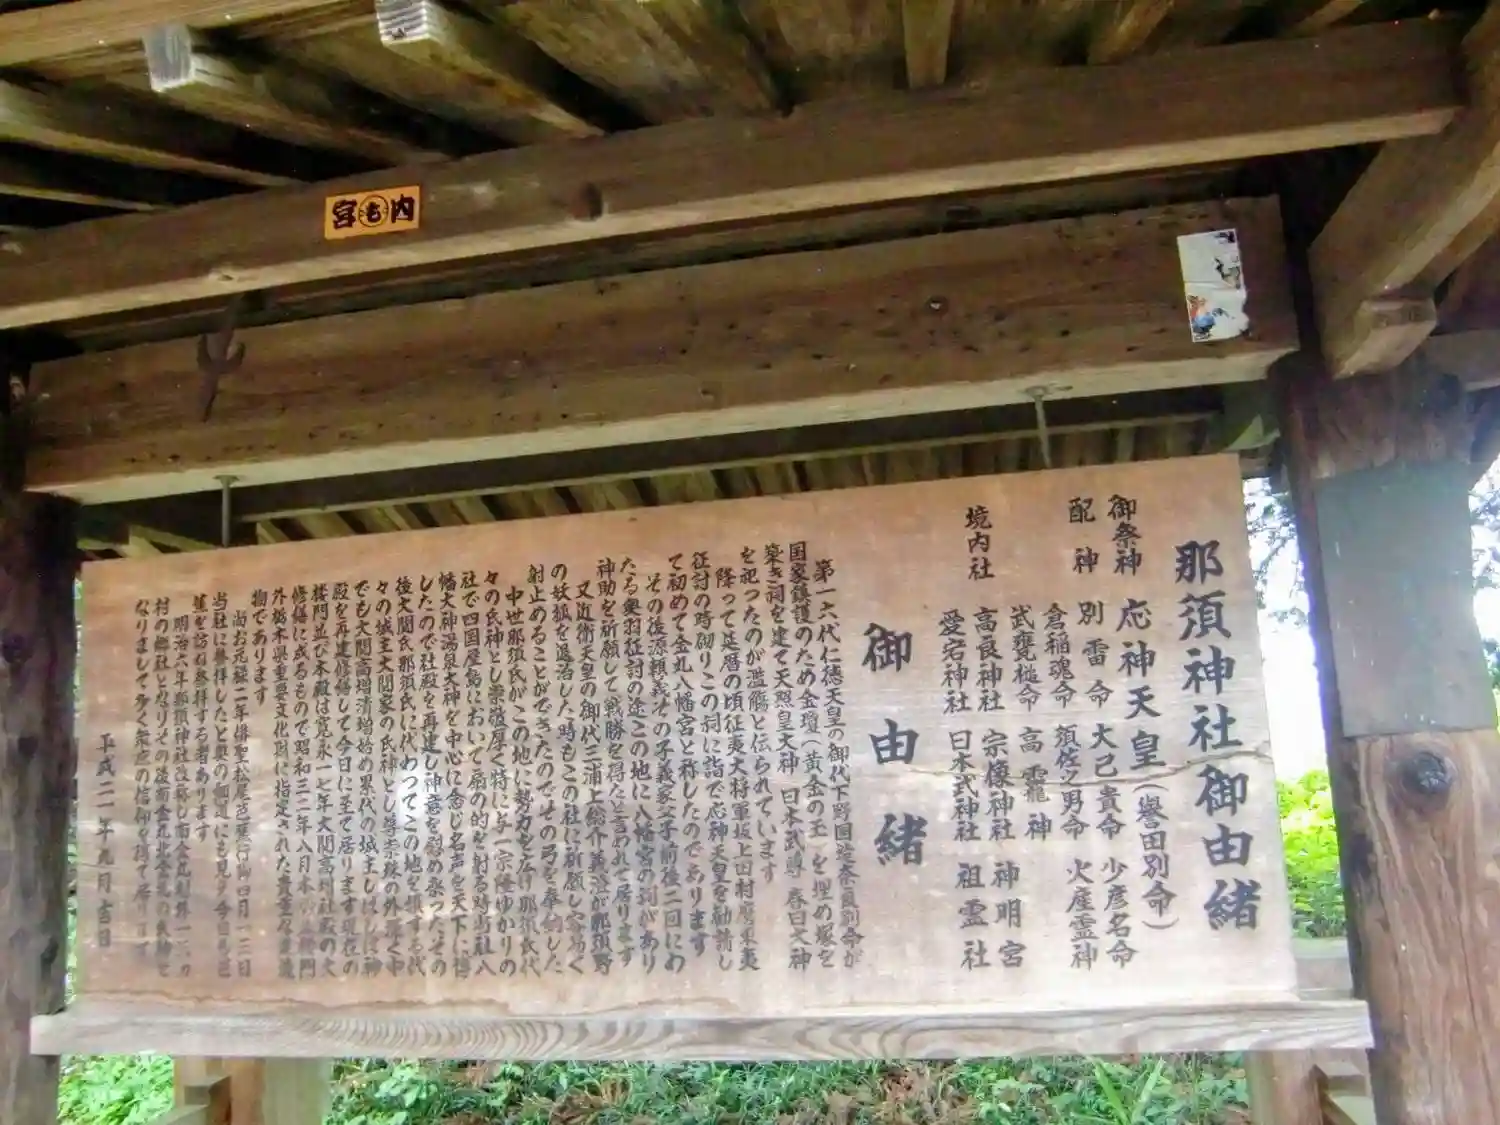 宮も内
那須神社御由緒
御祭神 応神天皇(誉田別命)
配神 別雷命 大己貴命 少彦名命
倉稲魂命 須佐之男命 火産霊神
武甕槌命 高龗神
境内社 高良神社 宗像神社 神明宮
愛宕神社 日本武神社 祖霊社
御由緒
第一六代仁徳天皇の御代下野国造奈貢別命が
国家鎮護のため金瓊(黄金の玉)を埋め塚を
築き祠を建て天照皇大神 日本武尊 春日大神
を祀ったのが濫觴と伝られています
降って延暦の頃征夷大将軍坂上田村麿東夷
征討の時砌りこの祠に詣で応神天皇を勧請し
て初めて金丸八幡宮と称したのであります
その後源頼義その子義家父子前後二回にわ
たる奥羽征討の途この地に八幡宮の祠があり
神助を祈願して戦勝を得たと言われて居ります
又近衛天皇の御代三浦上総介義澄が那須野
の妖狐を退治した時もこの社に祈願し容易く
射止めることができたのでその弓を奉納した
中世那須氏がこの地に勢力を広げ那須氏代
々の氏神とし崇敬厚く特に与一宗隆ゆかりの
社で四国屋島において扇の的を射る時当社八
幡大神湯泉大神を中心に念じ名声を天下に博
したので社殿を再建し神意を慰め奉ったその
後大関氏那須氏に代わってこの地を領する代
々の城主大関家の氏神とし尊崇殊の外篤く中
でも大関高増清増始め累代の城主しばしば神
殿を再建修繕して今日に至て居ります現在の
楼門並び本殿は寛永一七年大関高増社殿の大
修繕に成るもので昭和三二年八月本
外栃木県重要文化財に指定された貴重な建造
物であります
尚お元禄二年俳聖松尾芭蕉行脚四月一三日
当社に参拝したと奥の細道にも見え今日も芭
蕉を訪ね参拝する者あります
明治六年那須神社と改称し
村の郷社となりその後南金丸北金丸の氏神と
なりまして多く衆庶の信仰を得て居ります
平成二一年九月吉日